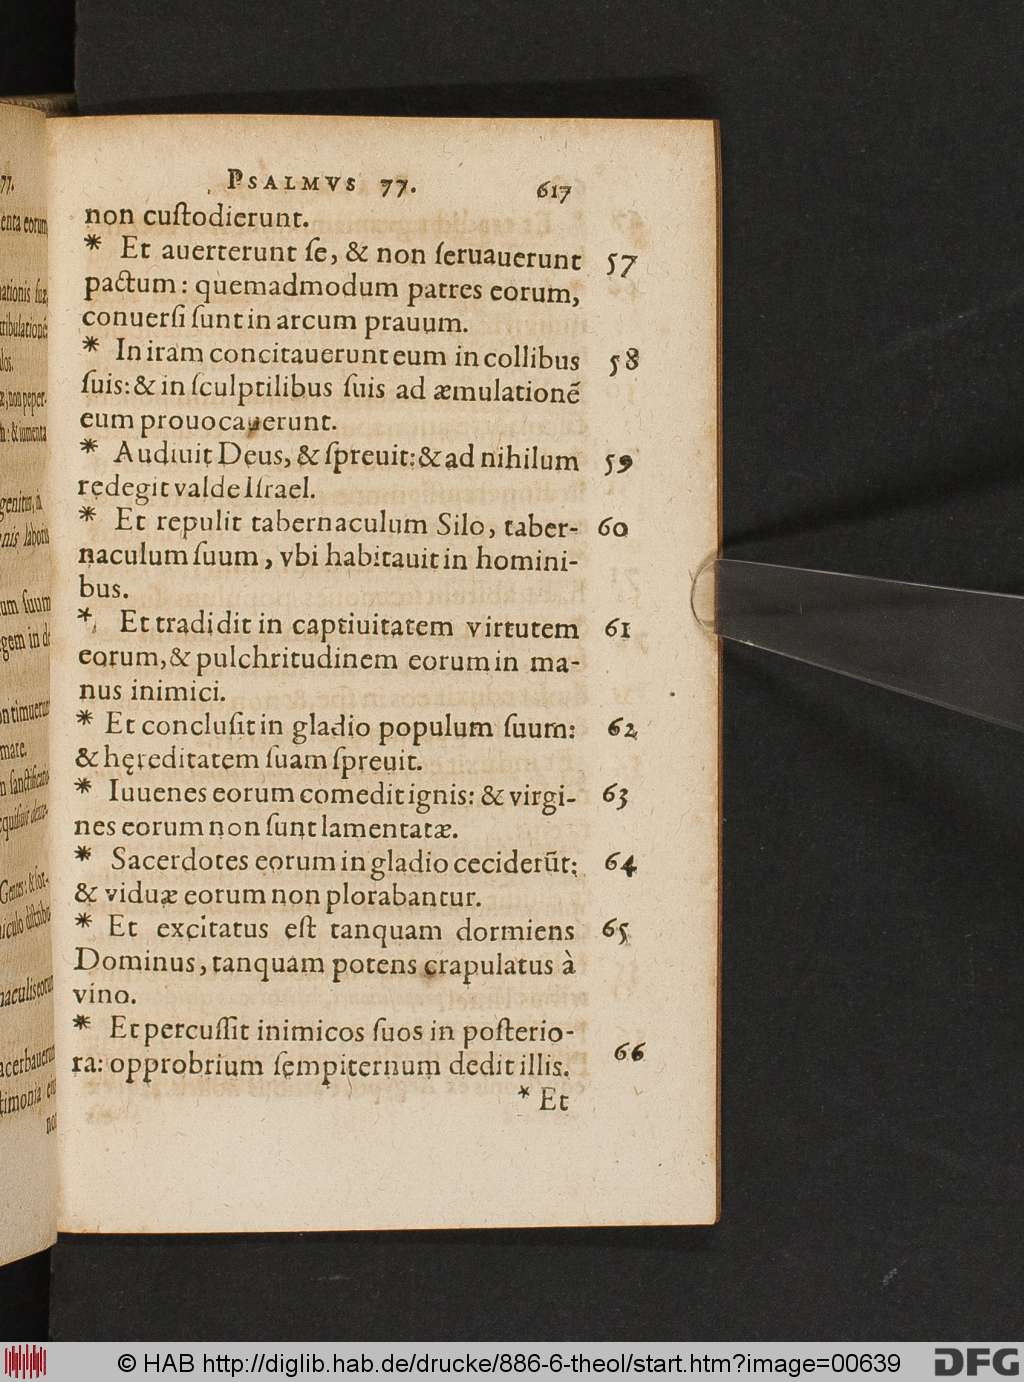 77.
enta eorum
ationis suæ
tribulationē
PSALMVS 77. 617
non custodierunt.
* Et auerterunt se, & non seruauerunt 57
pactum: quemadmodum patres eorum,
conuersi sunt in arcum prauum.
* In iram concitauerunt eum in collibus 58
suis: & in sculptilibus suis ad æmulationē
eum prouocauerunt.
* Audiuit Deus, & spreuit: & ad nihilum 59
redegit valde Israel.
* Et repulit tabernaculum Silo, taber- 60
naculum suum, vbi habitauit in homini-
bus.
* Et tradidit in captiuitatem virtutem 61
eorum, & pulchritudinem eorum in ma-
nus inimici.
* Et conclusit in gladio populum suum: 62
& hęreditatem suam spreuit.
* Iuuenes eorum comedit ignis: & virgi- 63
nes eorum non sunt lamentatæ.
* Sacerdotes eorum in gladio ceciderūt: 64
& viduæ eorum non plorabantur.
* Et excitatus est tanquam dormiens 65
Dominus, tanquam potens crapulatus à
vino.
* Et percussit inimicos suos in posterio-
ra: opprobrium sempiternum dedit illis. 66
* Et
© HAB http://diglib.hab.de/drucke/886-6-theol/start.htm?image=00639
DFG